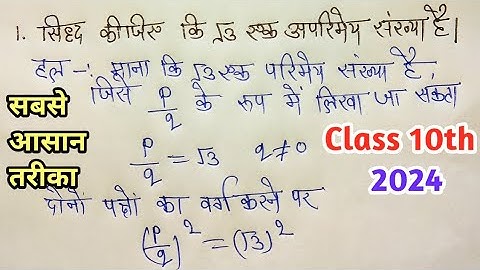 1. सिद्ध कीजिए कि √3 एक अपरिमेय संख्या है।
हल -: माना कि √3 एक परिमेय संख्या है,
जिसे p/q के रूप में लिखा जा सकता
सबसे
आसान
तरीका
p/q = √3 q≠0
Class 10th
2024
दोनों पक्षों का वर्ग करने पर
(p/q)² = (√3)²